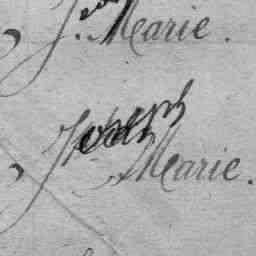 J. Marie.
Joseph
Marie.